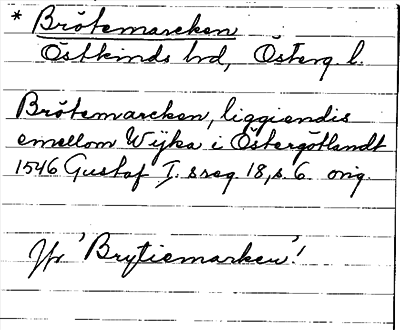 * Brötemarcken
Östkinds hd, Österg. l.
Brötemarcken, liggiendis
emellom Wijka i Östergötlandt
1546 Gustaf I. s reg. 18, s. 6. orig.
Jfr 'Brytiemarken'!